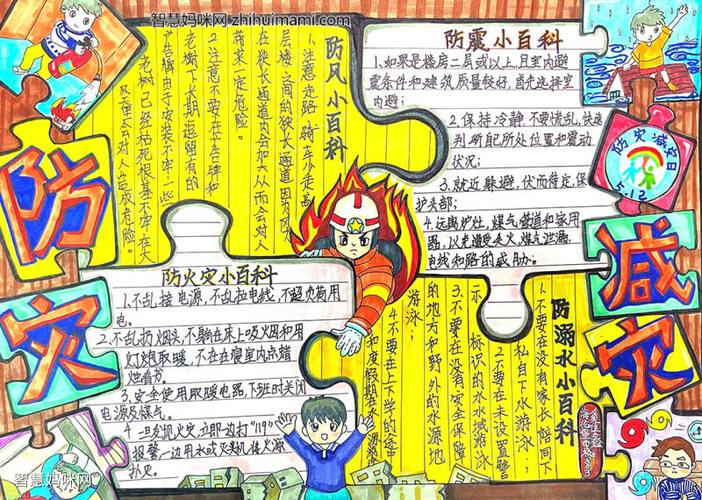 智慧妈咪网 zhihuimami.com
防灾
减灾
防风小百科
1.注意走路、骑车少走高
层楼之间的狭长通道,因为风
在狭长通道内会加大从而会对人
带来一定危险。
2.注意不要在广告牌和
老树下长期逗留有的
广告牌由于安装不牢、一些
老树已经枯死根基不牢,在大
风天会对人造成危险。
防震小百科
1.如果是楼房二层或以上,且室内避
震条件和建筑质量较好,首先选择室
内避;
2.保持冷静,不要慌乱,快速
判断所处位置和震动
状况;
3.就近躲避,伏而待定,保
护头部;
4.远离炉灶,煤气管道和家用
器,以免遭受失火,煤气泄漏,
电线短路的威胁。
防灾减灾日
5.12
防火灾小百科
1.不乱接电源,不乱拉电线,不超负荷用
电。
2.不乱扔烟头,不躺在床上吸烟和用
灯炮取暖,不在在寝室内点蜡
烛看书。
3.安全使用取暖电器,下班时关闭
电源及煤气。
4.一旦发机火灾,立即边打"119"
报警一边用水或灭火机住火源
扑灭。
防溺水小百科
1.不要在没有家长陪同下
私自下水游泳;
2.不要在未设置警
示标识的水域游泳
3.不要在没有安全保障
的地方和野外的水源地
游泳;
4.不要在上下学的途中
智慧妈咪网